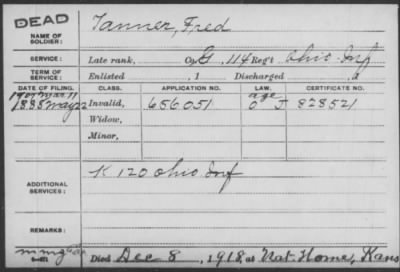 DEAD
NAME OF SOLDIER: Tanner, Fred
SERVICE: Late rank, Co. G, 114 Reg't Ohio Inf
TERM OF SERVICE: Enlisted , 1 Discharged , 1
DATE OF FILING. CLASS. APPLICATION NO. LAW. CERTIFICATE NO.
1907 Mar 11 age
1888 May 22 Invalid, 656051 O J 828521
Widow,
Minor,
ADDITIONAL SERVICES: K 120 Ohio Inf
REMARKS:
Died Dec 8, 1918, at Nat. Home, Kans